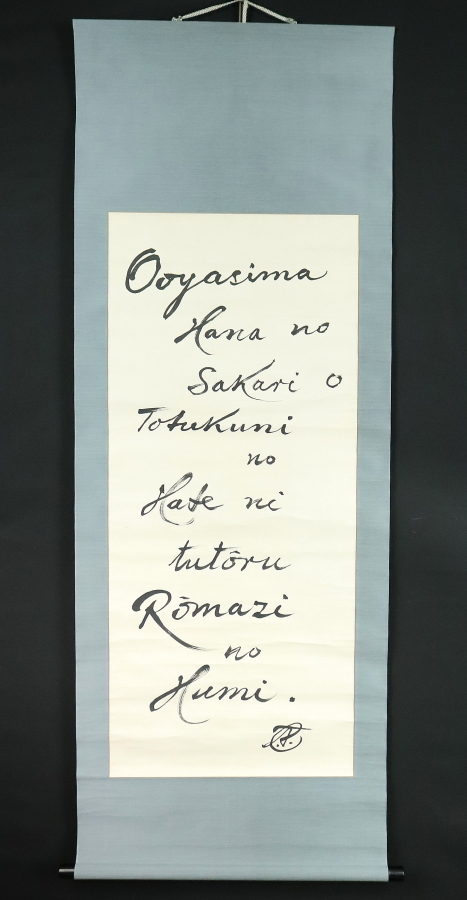 Ooyasima
Hana no
Sakari o
Totukuni
no
Hate ni
tutôru
Rômazi
no
Humi.